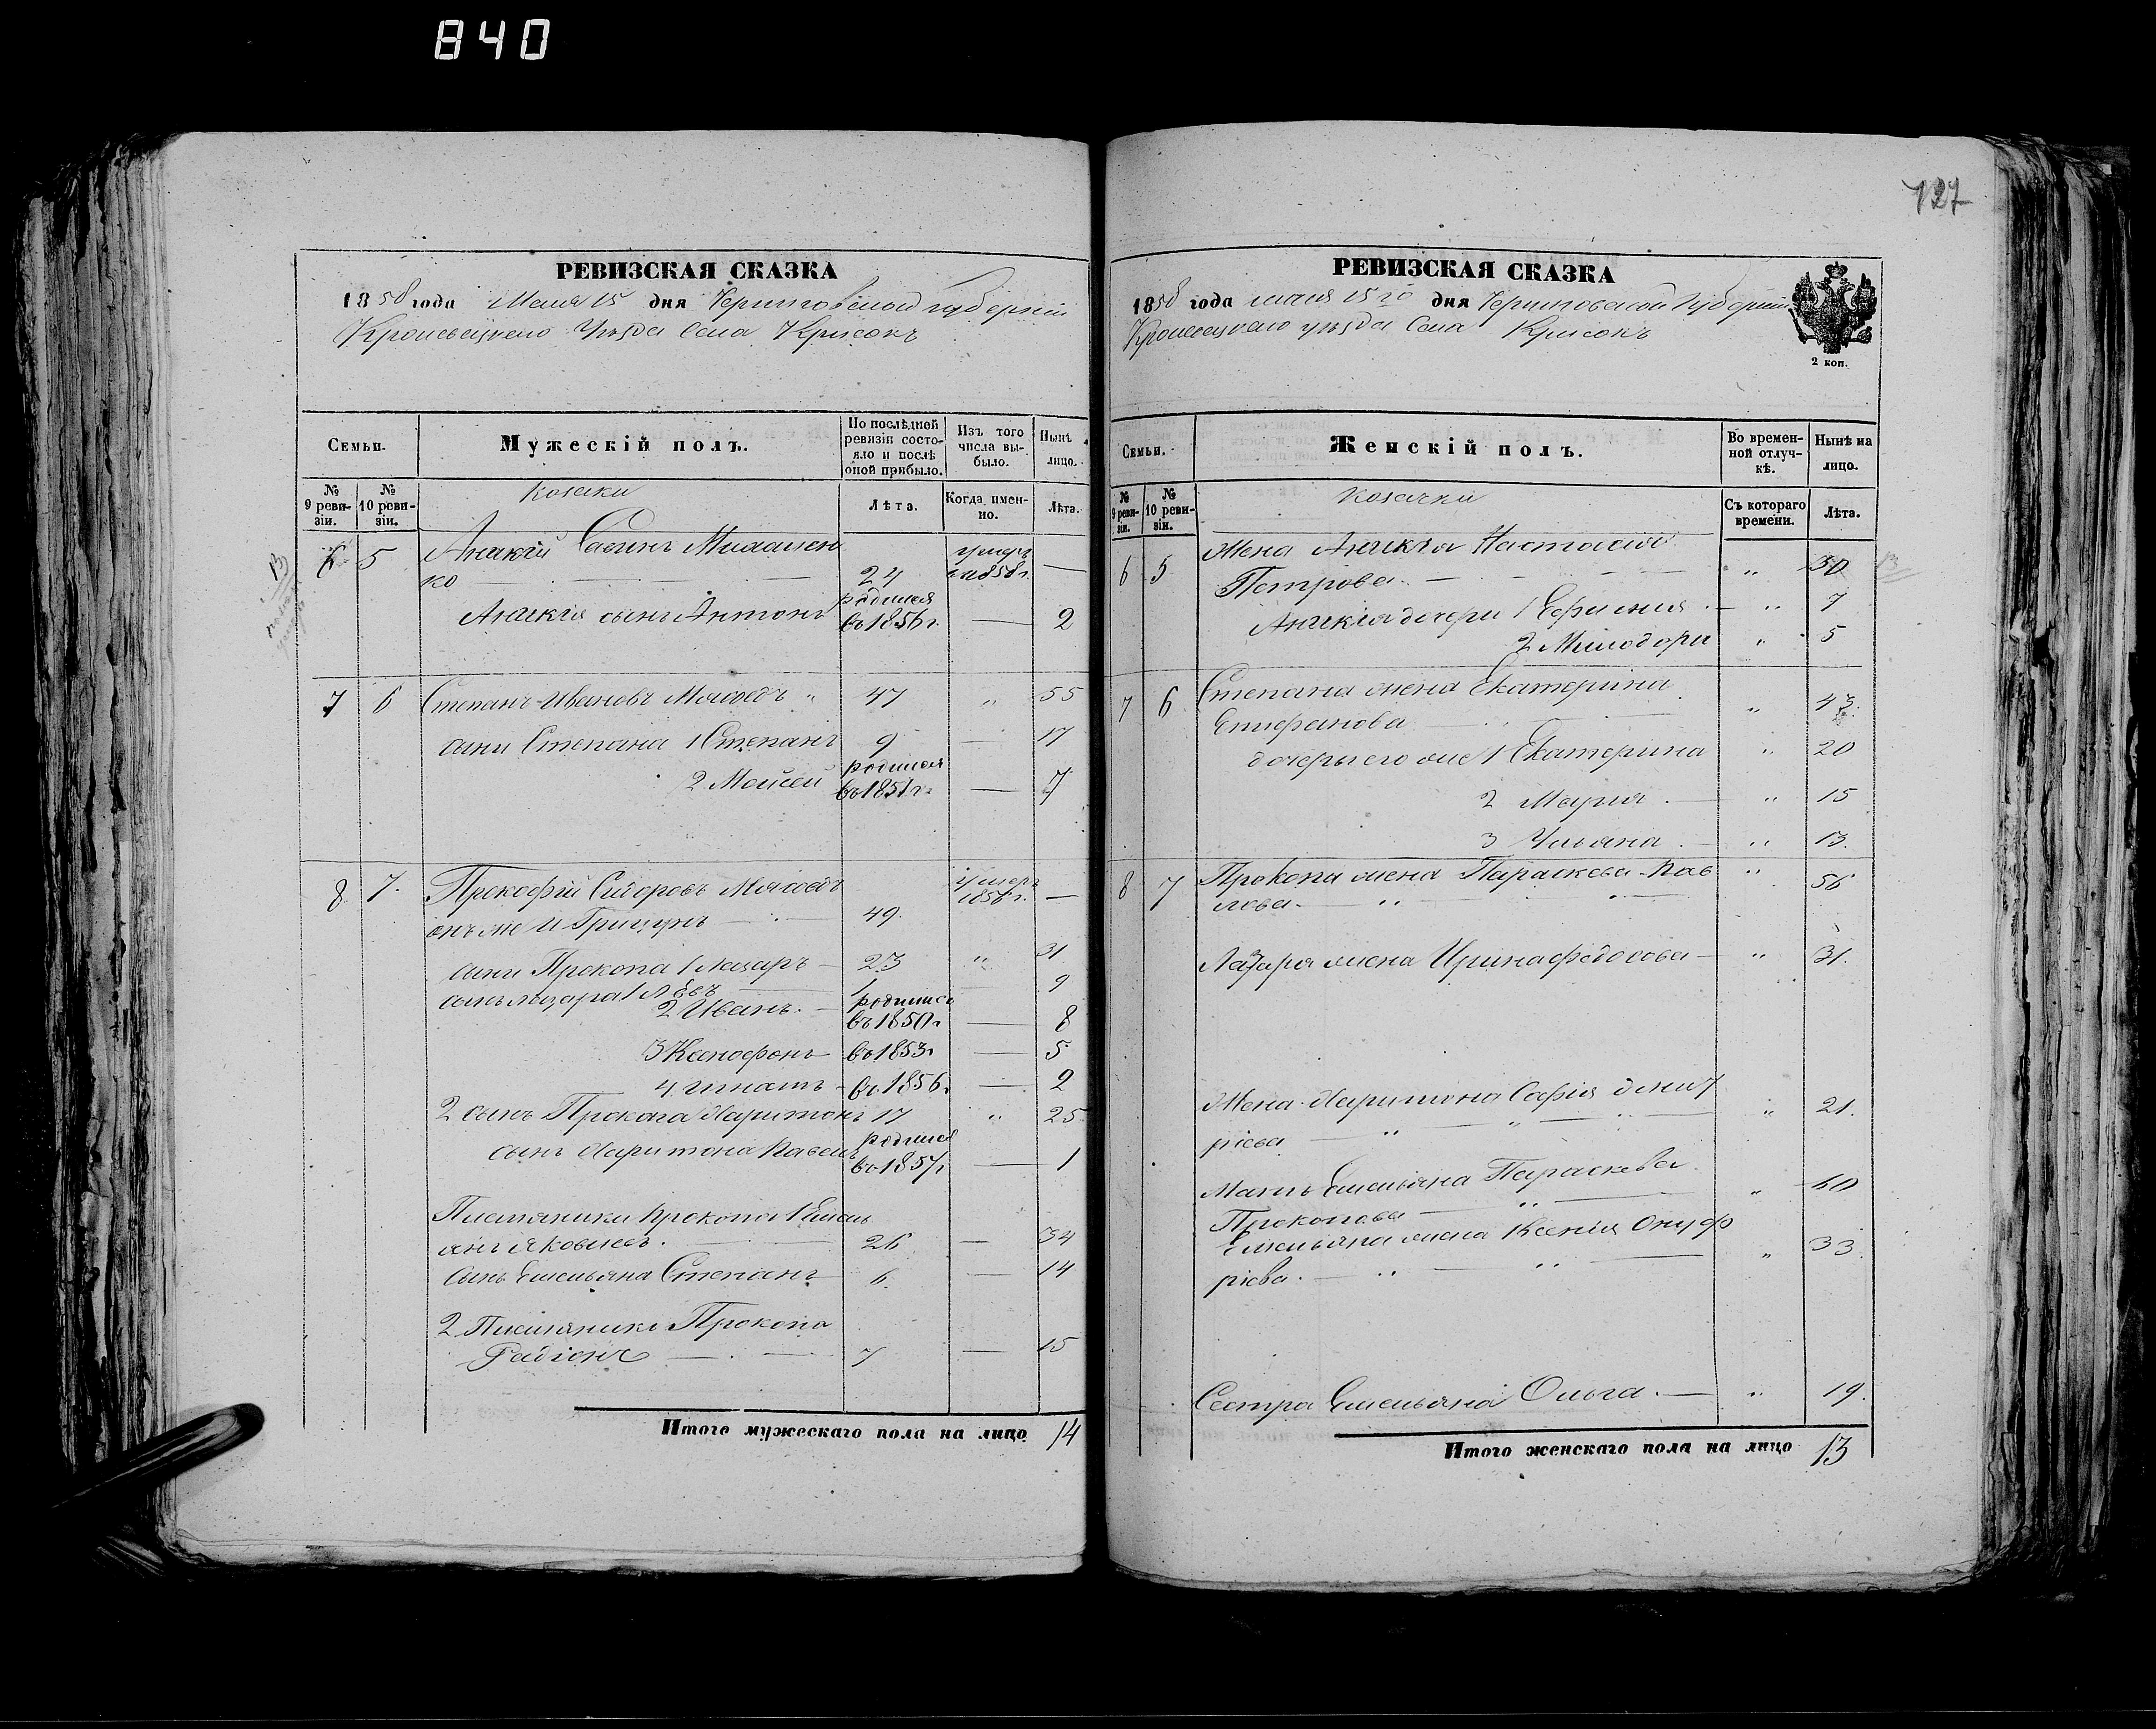 840
127
РЕВИЗСКАЯ СКАЗКА
1858 года Маія 15 дня Черниговской губерніи
Кролевецкаго Уѣзда Села Крисокъ
Семьи.
Мужескій полъ.
По послѣдней ревизіи состояло и послѣ оной прибыло.
Изъ того числа выбыло.
Нынѣ лицо.
№ 9 ревизіи.
№ 10 ревизіи.
Козаки
Лѣта.
Когда именно.
Лѣта.
13
6 5 Савинъ умеръ
ко 24 1858 г. —
сынъ Антонъ родился въ 1856 г. — 2
7 6 Степанъ Ивановъ 47 „ 55
сыни Степана 1 Степанъ 9 — 17
2 Мойсей родился въ 1851 г. — 7
8 7. Прокофій Сидоровъ умеръ 1858 г. —
онъ же и 49.
сыни Прокопа 1 Лазаръ — 23 „ 31
сынъ Лазара 1 1 9
2 Иванъ. — родился въ 1850 г. — 8
3 Ксенофонъ — въ 1853 г. — 5
4 — въ 1856 г. — 2
2 сынъ Прокопа Харитонъ 17 „ 25
сынъ Харитона Павелъ родился въ 1857 г. — 1
Племяники Прокопа 1 Емель
янъ Яковлевъ. 26 — 34
Сынъ Емельяна Степанъ — 6 — 14
2 Племяникъ Прокопа
Радіонъ 7 — 15
Итого мужескаго пола на лицо 14
РЕВИЗСКАЯ СКАЗКА
1858 года маія 15го дня Черниговской Губерніи
Кролевецкаго уѣзда Села Крисокъ
2 коп.
Семьи.
Женскій полъ.
Во временной отлучкѣ.
Нынѣ на лицо.
№ 9 ревизіи.
№ 10 ревизіи.
Козачки
Съ котораго времени.
Лѣта.
6 5 Жена Настасія
Петрова. „ 30
дочери 1 Ефимия — „ 7
2 Милодора „ 5
7 6 Степана жена Екатерина
Епифанова „ 43.
дочеры его же 1 Екатерина „ 20
2 Мария. — „ 15
3 Ульяна. — „ 13.
8 7 Прокопа жена Параскева Пав „ 56
лова
Лазаря жена Ирина Федосова — „ 31.
Жена Харитона Софія Дмит
ріева „ 21.
Мать Емельяна Параскева
Прокопова „ 60
Емельяна жена Ксенія Онуф
ріева. „ 33.
Сестра Емельяна Ольга. — „ 19.
Итого женскаго пола на лицо 13